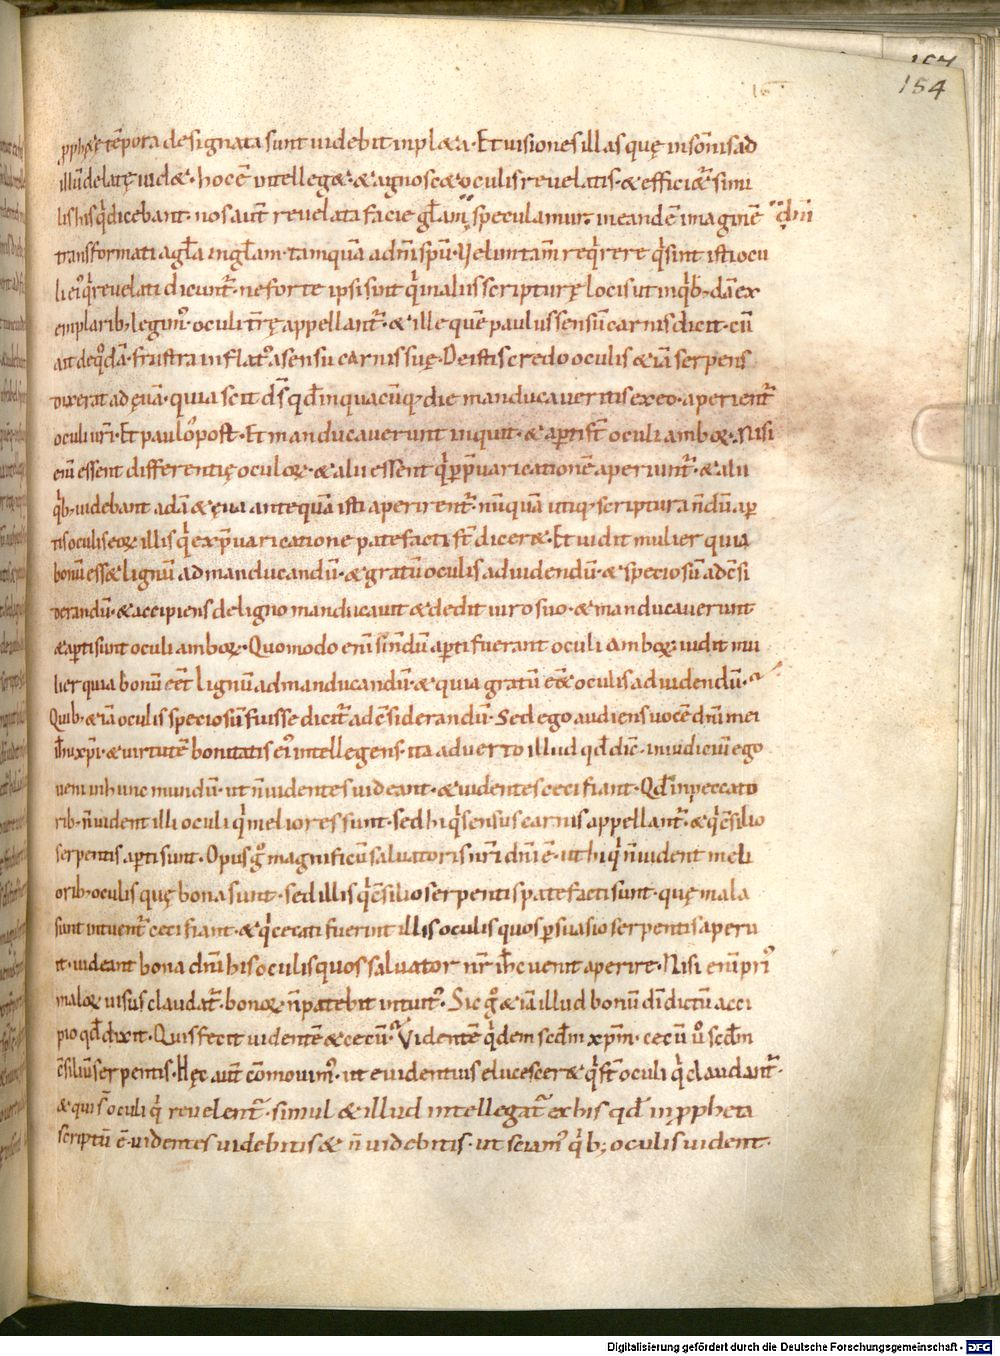 157
154
16
ꝓphęte tēpora designata sunt uidebit inpleta. Et uisiones illas quę insōnis ad
illū delatę uidet. hoc ē intelleget. & agnoscet oculis reuelatis. & efficiet̄ simi
lis his q̇ dicebant. nos aut̄ reuelata facie gl̄am speculamur. in eandē imaginē dn̄i
transformati agl̄a in gl̄am. tamquā a dn̄i spū. Uelim tam̄ reqͥrere qͥ sint isti ocu
li eiꝰ qͥ reuelati dicunt̄. ne forte ipsi sunt qͥ in aliis scripturę locis ut in qͥb; dā ex
emplarib; legimꝰ. oculi tr̄ę appellant̄. & ille quē paulus sensū carnis dicit. cū
ait de qͦdā. frustra inflatꝰ a sensu carnis suę. De istis credo oculis & iā serpens
dixerat ad euā. quia scit ds̄ qd̄ in quacūq; die manducaueritis ex eo. aperient̄
oculi ur̄i. Et pauloͦ post. Et manducauerunt inquit. & ap̄ti st̄ oculi amboꝝ. Nisi
enī essent differentię oculoꝝ. & alii essent qͥ ꝑ p̄uaricationē aperiunt̄. & alii
qͥb; uidebant adā & ęua antequā isti aperirent̄. nūquā utiq; scriptura n̄dū ap̄
tis oculis eoꝝ illis qͥ ex p̄uaricatione patefacti st̄ diceret. Et uidit mulier quia
bonū esset lignū ad manducandū. & gratū oculis ad uidendū. & speciosū ad c̄si
derandū. & accipiens de ligno manducauit & dedit uiro suo. & manducauerunt
& ap̄ti sunt oculi amboꝝ. Quomodo enī si n̄dū ap̄ti fuerant oculi amboꝝ uidit mu
lier quia bonū eēt lignū ad manducandū. & quia gratū eēt oculis ad uidendū.
Quib; & iā oculis speciosū fuisse dicit̄ ad c̄siderandū. Sed ego audiens uocē dn̄i mei
ih̄u xp̄i. & uirtutē bonitatis eiꝰ intellegens. ita aduerto illud qd̄ dic̄. in iudiciū ego
ueni in hunc mundū. ut n̄ uidentes uideant. & uidentes ceci fiant. Qd̄ in peccato
rib; n̄ uident illi oculi qͥ meliores sunt. sed hi qͥ sensus carnis appellant̄. & qͥ c̄silio
serpentis ap̄ti sunt. Opus gͦ magnificū saluatoris nr̄i dn̄i ē. ut hi qͥ n̄ uident meli
orib; oculis quę bona sunt. sed illis qͥ c̄silio serpentis patefacti sunt. quę mala
sunt intuent̄ ceci fiant. & qͥ cecati fuerint illis oculis quos ꝑsuasio serpentis aperu
it. uideant bona dn̄i his oculis quos saluator nr̄ ih̄c uenit aperire. Nisi enī priꝰ
maloꝝ uisus claudat̄. bonoꝝ n̄ patebit intuitꝰ. Sic gͦ & iā illud bonū dī dictū acci
pio qd̄ dixit. Quis fecit uidentē & cecū. Videntē qͥdem scd̄m xp̄m. cecū uͦ scd̄m
c̄siliū serpentis. Hęc aut̄ cōmouimꝰ. ut euidentius elucesceret qͥ st̄ oculi qͥ claudant̄.
& qui s̄ oculi qͥ reuelent̄. simul & illud intellegat̄ ex his qd̄ in ꝓpheta
scriptū ē. uidentes uidebitis & n̄ uidebitis. ut sciamꝰ qͥb; oculis uident
Digitalisierung gefördert durch die Deutsche Forschungsgemeinschaft - DFG